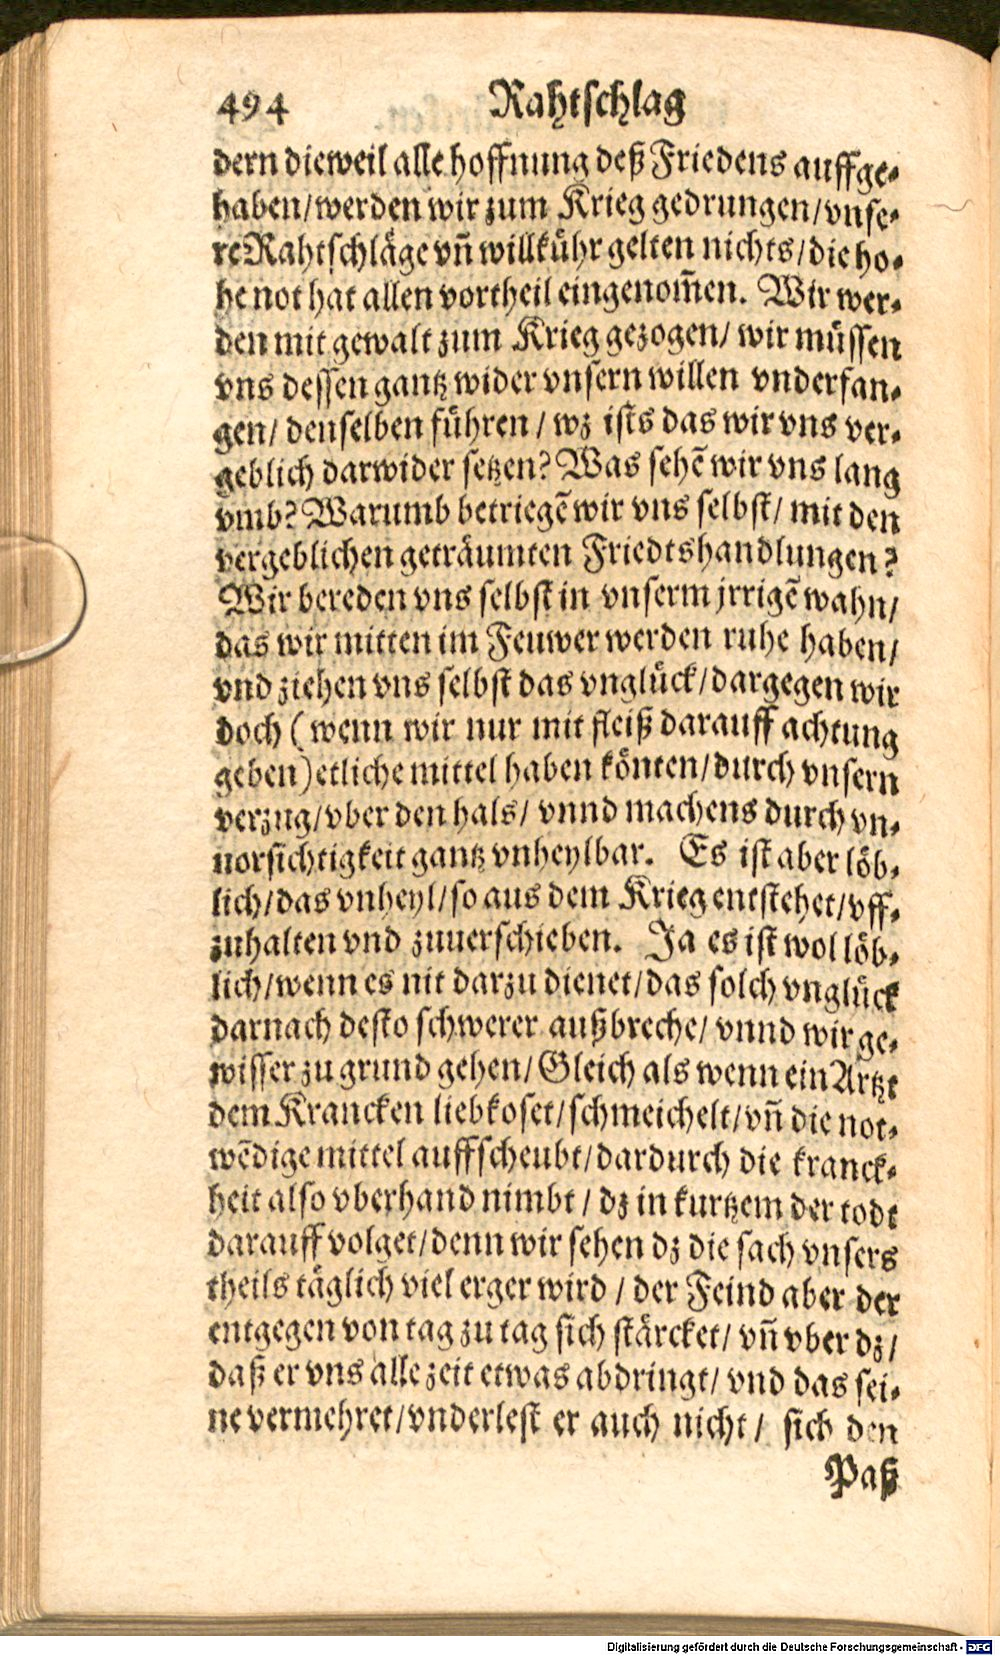 494 Rahtschlag
dern dieweil alle hoffnung deß Friedens auffge-
haben/werden wir zum Krieg gedrungen/vnse-
re Rahtschläge vñ willkühr gelten nichts/die ho-
he not hat allen vortheil eingenom̃en. Wir wer-
den mit gewalt zum Krieg gezogen/ wir müssen
vns dessen gantz wider vnsern willen vnderfan-
gen/ denselben führen / wz ists das wir vns ver-
geblich darwider setzen? Was sehẽ wir vns lang
vmb? Warumb betriegẽ wir vns selbst/ mit den
vergeblichen geträumten Friedtshandlungen?
Wir bereden vns selbst in vnserm jrrigẽ wahn/
das wir mitten im Feuwer werden ruhe haben/
vnd ziehen vns selbst das vnglück/dargegen wir
doch ( wenn wir nur mit fleiß darauff achtung
geben) etliche mittel haben könten/durch vnsern
verzug/vber den hals/ vnnd machens durch vn-
uorsichtigkeit gantz vnheylbar. Es ist aber löb-
lich/das vnheyl/so aus dem Krieg entstehet/vff-
zuhalten vnd zuuerschieben. Ja es ist wol löb-
lich/wenn es nit darzu dienet/das solch vnglück
darnach desto schwerer außbreche/ vnnd wir ge-
wisser zu grund gehen/Gleich als wenn ein Artzt
dem Krancken liebkoset/schmeichelt/vñ die not-
wẽdige mittel auffscheubt/dardurch die kranck-
heit also vberhand nimbt / dz in kurtzem der todt
darauff volget/denn wir sehen dz die sach vnsers
theils täglich viel erger wird / der Feind aber der
entgegen von tag zu tag sich stärcket/ vñ vber dz/
daß er vns alle zeit etwas abdringt/ vnd das sei-
ne vermehret/vnderlest er auch nicht/ sich den
Paß
Digitalisierung gefördert durch die Deutsche Forschungsgemeinschaft - DFG